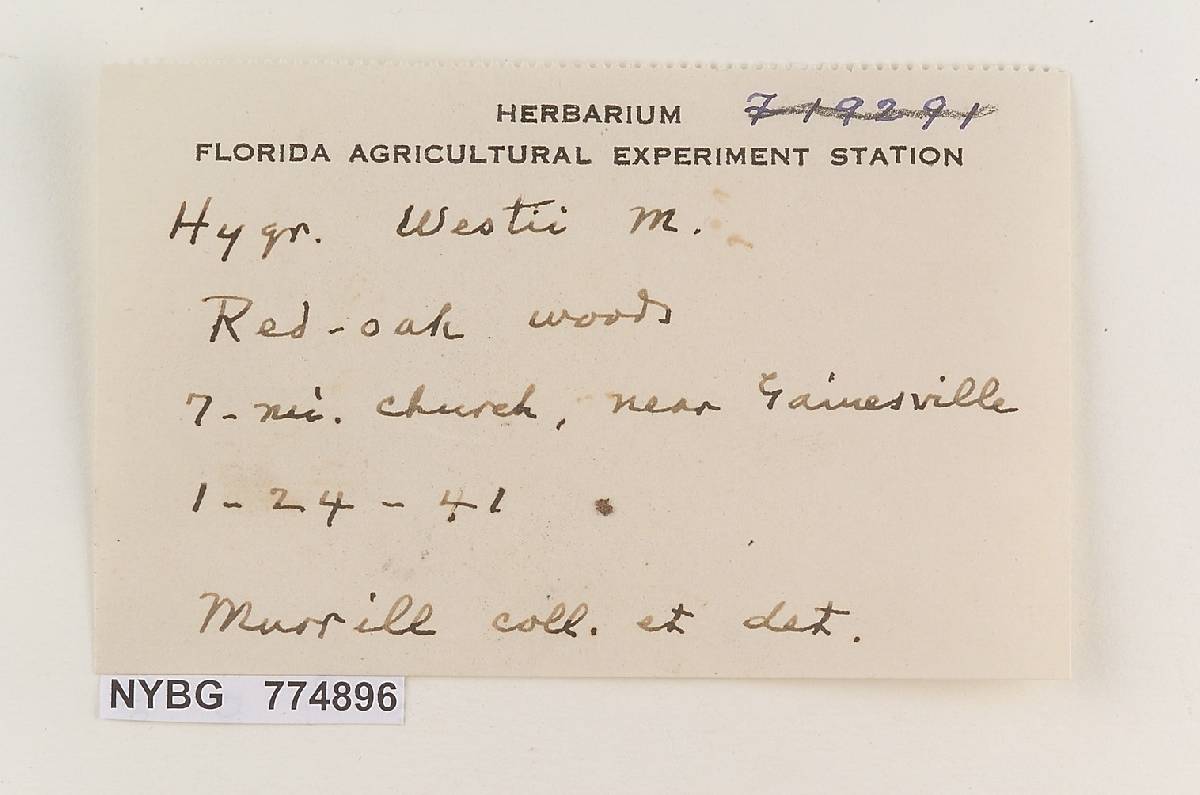 HERBARIUM F19291
FLORIDA AGRICULTURAL EXPERIMENT STATION
Hygr. Westii M.
Red-oak woods
7-mi. church, near Gainesville
1-24-41
Murrill coll. et det.
NYBG 774896